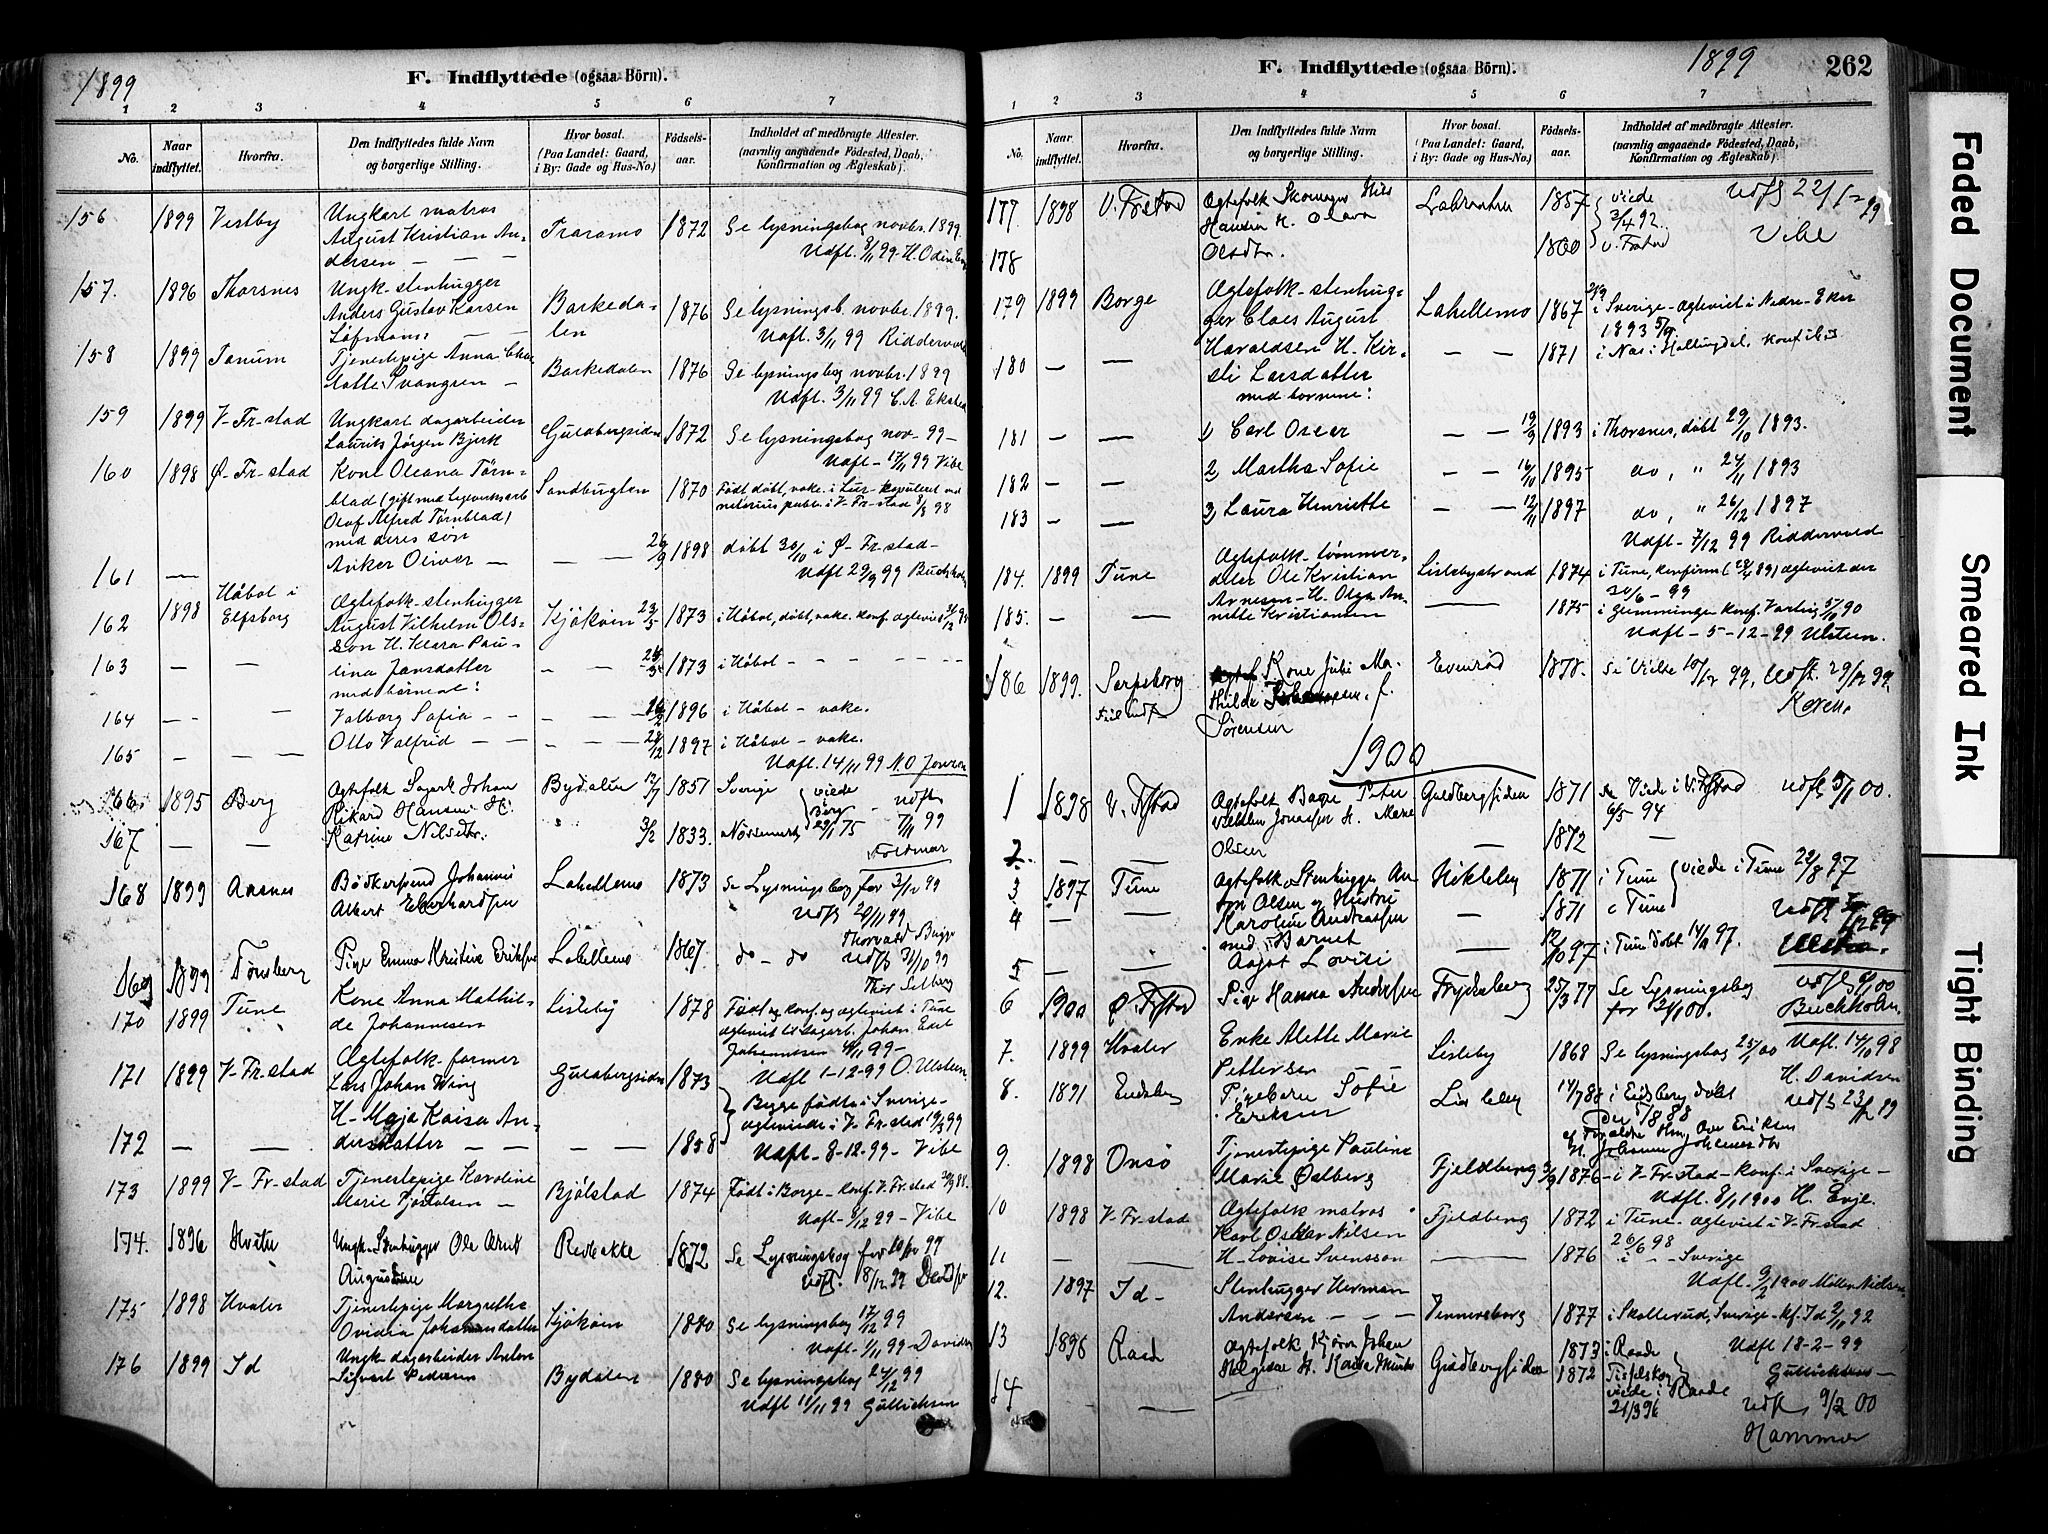 1899
F. Indflyttede (ogsaa Börn).
1 2 3 4 5 6 7
No.
Naar indflyttet.
Hvorfra.
Den Indflyttedes fulde Navn og borgerlige Stilling.
Hvor bosat. (Paa Landet: Gaard, i By: Gade og Hus-No.)
Födsels-aar.
Indholdet af medbragte Attester. (navnlig angaaende Födested, Daab, Konfirmation og Ægteskab).
156 1899 Vestby Ungkarl matros Traramo 1872 Se lysningsbog novbr. 1899.
August Kristian An- Udfl. 8/11 99 - H. Odin
dersen — — —
157. 1896 Thorsnes Ungk. stenhugger Barkeda- 1876 Se lysningsb. novbr. 1899.
Anders Gustav Larsen len Udfl. 3/11 99 Riddervold
Löfmans
158 1899 Tanum Tjenestepige Anna Char- Barkedalen 1876 Se lysningsbog novbr. 1899
lotte Svangren — Udfl. 3/11 99 C. A.
159 1899 V-Fr-stad Ungkarl dagarbeider Guldbergsiden 1872 Se lysningsbog nov- 99 -
Laurits Jørgen Bjerk Udfl - 17/11 99 Vibe
160 1898 Ø-Fr-stad Kone Oleana Törn- Sandbugten 1870 Født, døbt, vake. i
blad (gift med notarius publ. i V-Fr-stad 8/8 98
Olaf Alfred Törnblad)
med deres søn
161 — Anker Oliver — — — 26/9 1898 døbt 30/10 i Ø-Fr-stad -
Udfl 29/9 99 Buchholm
162 1898 Håbol i Elfsborg Ægtefolk - stenhugger Kjölven 23/5 1873 i Håbol, døbt, vake. konf. ægteviet
August Vilhelm Ols-
son H. Klara Pau-
163 — — lina Jansdatter — — 1873 i Håbol - - - -
med börnene:
164 — — Valborg Sofia — — 1896 i Håbol - vake.
165 — — Otto Valfrid — — 28/12 1897 i Håbol - vake.
Udfl. 14/11 99 N. O. Jonsson
166 1895 Berg Ægtefolk Sagarb. Johan Bydalen 12/7 1851 Sverige viede
Rikard Hansen H. Berg - udfl.
167 — — Katrine Nilsdtr. " 3/2 1833. 29/1 75 7/11 99
Foldmar
168 1899 Aasnes Bödkersvend Johannes Labellemo 1873 Se Lysningsbog for 3/12 99
Albert Eberhardsen Udfl 20/11 99
Thorvald Bugge
169 1899 Tönsberg Pige Emma Kristine Eriksen Labellemo 1867 do - do udfl 31/10 99
Thor Selberg
170 1899 Tune Kone Anna Mathil- Lisleby 1878 Født og konf. og ægteviet i Tune
de Johannesen ægteviet til Sagarb. Johan
Johannesen 4/11 99 -
Udfl 1-12-99 O. Ulsteen
171 1899 V-Fr-stad Ægtefolk - former Guldbergsiden 1873 Begge fødte i Sverige -
Lars Johan Wing ægteviede i V-Fr-stad 19/3 99
H- Maja Kaisa An-
172 — — dersdatter — — — 1858 Udfl - 8-12-99 - Vibe
173 1899 V-Fr-stad Tjenestepige Karoline Bjölstad 1874 Født i Borge - Konf. V-Fr-stad
Marie — Udfl - 9/12 99 - Vibe
174. 1896 Hvaler Ungk. Stenhugger Ole Arnt Rebakke 1872 Se Lysningsbog for 10/12 99
Augustsen udfl. 18/12 99
175 1898 Hvaler Tjenestepige Margrethe Kjölven 1880 Se lysningsbog 17/12 99
Ovidia Johannesdatter Udfl - 9/11 99 - Davidsen
176 1899 Id Ungk - dagarbeider Anton Bydalen 1880 Se lysningsbog 24/12 99
Sigvart Pedersen Udfl 11/11 99 Gullichsen
F. Indflyttede (ogsaa Börn).
1899
262
1 2 3 4 5 6 7
No.
Naar indflyttet.
Hvorfra.
Den Indflyttedes fulde Navn og borgerlige Stilling.
Hvor bosat. (Paa Landet: Gaard, i By: Gade og Hus-No.)
Födsels-aar.
Indholdet af medbragte Attester. (navnlig angaaende Födested, Daab, Konfirmation og Ægteskab).
177 1898 V. Frstad Ægtefolk Skomager Nils 1857 viede Udfl 22/12 99
Hansen H. Olava 3/4 92. Vibe
178 Olsdtr. 1860 V. Frstad
179 1899 Borge Ægtefolk - stenhug- Labellemo 1867 i Sverige - ægteviet i Nedre-Eker
ger Claes August 1893
180 — — Haraldsen H. Kir- — — 1871 i Næs i Hallingdal, konf. ibid
sti Larsdatter
med börnene:
181 — — 1) Carl Oscar — — 19/9 1893 i Thorsnes, døbt 29/10 1893.
182 — — 2) Martha Sofie — — 16/10 1895 do, " 24/11 1893
183 — — 3) Laura Henriette — — 12/11 1897 do, " 26/12 1897
Udfl - 7/12 99 Riddervold
184. 1899 Tune Ægtefolk - tømmer- Lislebystrand 1874 i Tune, konfirm. ægteviet der
deler Ole Kristian 30/6 - 99
185. — — Arnesen - H. Olga An- — 1875 i konf. Varteig 5/10 90
nette Kristiansen Udfl - 5-12-99 Ulsteen.
186 1899. Sarpsborg Kone Juli Ma- Evenrød 1878. Se Vielse 10/12 99, Udfl. 29/12 99.
thilde f.
Sørensen
1900
1 1898 V. Frstad Ægtefolk Bager Peter Guldbergsiden 1871 Viede i V. Frstad udfl 3/1 00.
Vilhelm Jonassen H. Marie 6/5 94
2. — — Olsen — 1872 —
3 1897 Tune Ægtefolk Stenhugger An- Nikleby 1871 i Tune viede i Tune 22/8 97
4 — — ton Olsen og Hustru — 1871 i Tune
Karoline Andreassen
med Barnet
5 — — Aagot Lovise — 12/10 97 i Tune døbt 14/11 97.
6 1900 Ø. Frstad Pige Hanna Andersen Frydenberg 25/3 77 Se Lysningsbog for 12/1 00. udfl 9/1 00 Buchholm
7. 1899 Hvaler Enke Mette Marie Lisleby 1868 Se lysningsbog 25/1 00 Udfl. 14/10 98
Pettersen H. Davidsen
8. 1891 Eidsberg Pigebarn Sofie Lisleby 14/7 88 i Eidsberg døbt udfl 23/12 99
Eriksen der 5/8 88
af Forældre Eriksen
9. 1898 Onsö Tjenestepige Pauline Fjeldberg 3/9 1876 - i V-Fr-stad - konf. i Sverige -
Marie Østberg Udfl. 8/1 1900 H. Evje.
10 1898 V-Fr-stad Ægtefolk matros Fjeldberg 1872 i Tune - ægteviet i V-Fr-stad
Karl Oskar Nilsen 26/6 98
11 — — H - Lovise Svensson — 1876 i - - Sverige
Udfl. 9/2 1900 Møller Nielsen
12. 1897 Id - Stenhugger Herman Vennersborg 1877 i Skallerud, Sverige - kf. Id 2/11 92
Andersen — — — Udfl 18-2-99
13 1896 Raade Ægtefolk Björn Johan Guldbergsiden 1873 i Raade Gullichsen -
Helgesen H. Kaisa 1872
14 — — viede i Raade udfl 9/2 00
21/3 96 Hammer
Faded Document
Smeared Ink
Tight Binding